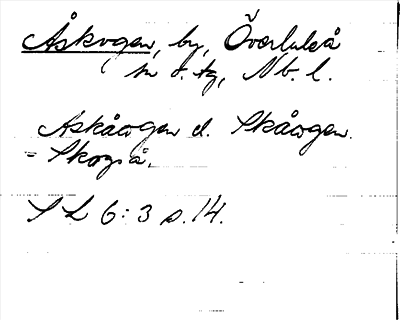 Åskogen, by, Överluleå
sn o. tg, Nb. l.
Askåogen el. Skåogen.
= Skogså.
S L 6:3 s. 14.